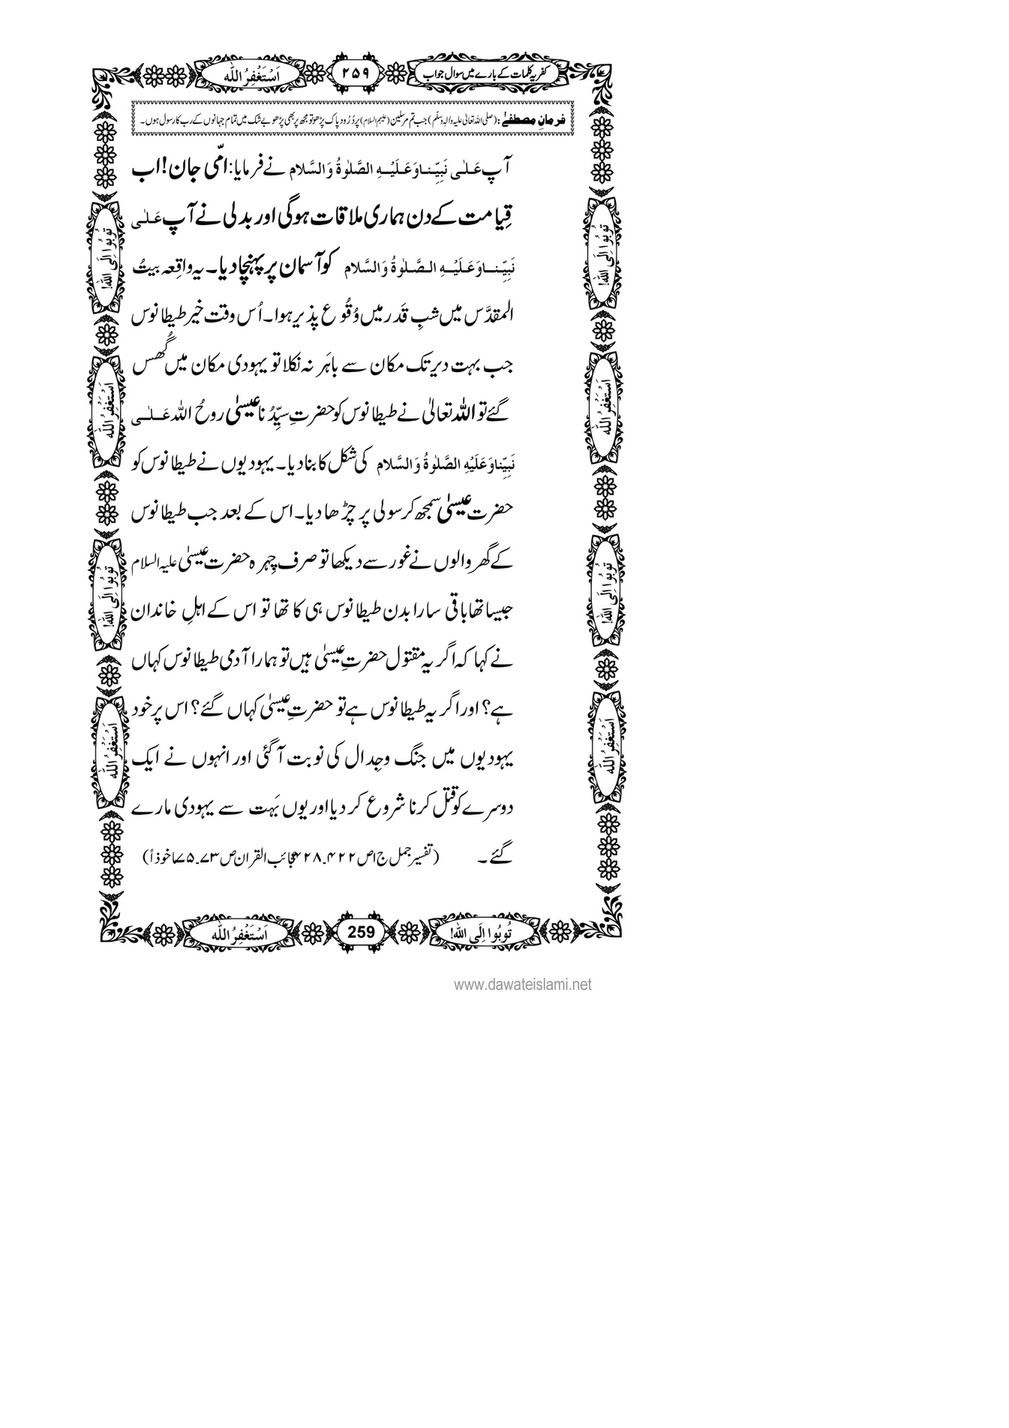 کفریہ کلمات کے بارے میں سوال جواب
۲۵۹
اَسْتَغْفِرُ اللّٰه
فرمانِ مصطفےٰ : (صلی اللہ تعالیٰ علیہ والہٖ وسلّم) جب تم مرسلین (علیہم السلام) پر دُرُود پاک پڑھو تو مجھ پر بھی پڑھو بے شک میں تمام جہانوں کے رب کا رسول ہوں۔
آپ عَلٰی نَبِیِّنَا وَعَلَیْہِ الصَّلٰوۃُ وَالسَّلام نے فرمایا: امّی جان! اب
قِیامت کے دن ہماری ملاقات ہوگی اور بدلی نے آپ عَلٰی
نَبِیِّنَا وَعَلَیْہِ الصَّلٰوۃُ وَالسَّلام کو آسمان پر پہنچا دیا۔ یہ واقِعہ بیتُ
المقدَّس میں شبِ قَدر میں وُقُوع پذیر ہوا۔ اُس وقت خیر طیطانوس
جب بہت دیر تک مکان سے باہَر نہ نکلا تو یہودی مکان میں گُھس
گئے تو اللہ تعالیٰ نے طیطانوس کو حضرتِ سیِّدُنا عیسیٰ روحُ اللہ عَلٰی
نَبِیِّنَا وَعَلَیْہِ الصَّلٰوۃُ وَالسَّلام کی شکل کا بنا دیا۔ یہودیوں نے طیطانوس کو
حضرت عیسیٰ سمجھ کر سولی پر چڑھا دیا۔ اس کے بعد جب طیطانوس
کے گھر والوں نے غور سے دیکھا تو صرف چِہرہ حضرت عیسیٰ علیہ السلام
جیسا تھا باقی سارا بدن طیطانوس ہی کا تھا تو اس کے اہلِ خاندان
نے کہا کہ اگر یہ مقتول حضرتِ عیسیٰ ہیں تو ہمارا آدمی طیطانوس کہاں
ہے؟ اور اگر یہ طیطانوس ہے تو حضرتِ عیسیٰ کہاں گئے؟ اس پر خود
یہودیوں میں جنگ وجِدال کی نوبت آ گئی اور انہوں نے ایک
دوسرے کو قتل کرنا شروع کر دیا اور یوں بَہت سے یہودی مارے
گئے۔ (تفسیر جمل ج۱ص ۴۲۲۔۴۲۸ عجائب القران ص۷۳۔۷۵ ماخوذاً)
تُوبُوا اِلَی اللّٰه!
اَسْتَغْفِرُ اللّٰه
تُوبُوا اِلَی اللّٰه!
اَسْتَغْفِرُ اللّٰه
تُوبُوا اِلَی اللّٰه!
اَسْتَغْفِرُ اللّٰه
تُوبُوا اِلَی اللّٰه!
اَسْتَغْفِرُ اللّٰه
تُوبُوا اِلَی اللّٰه!
259
اَسْتَغْفِرُ اللّٰه
www.dawateislami.net